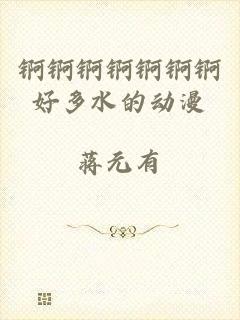 锕锕锕锕锕锕锕
好多水的动漫
蒋元有